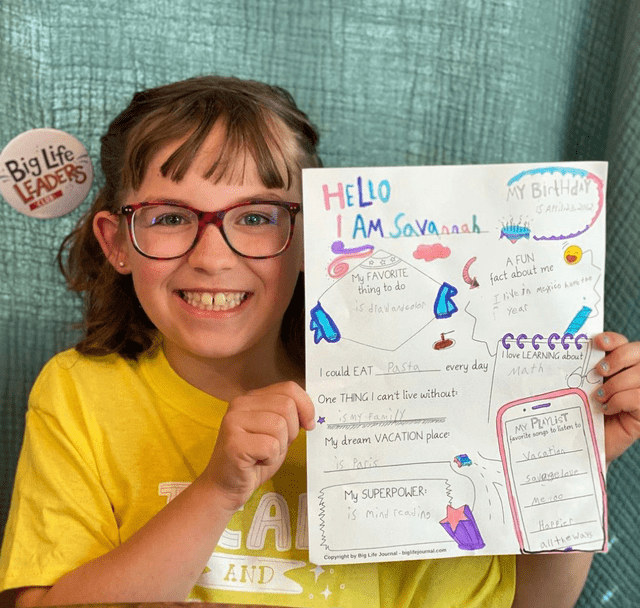 Big Life
LEADERS
CLUB
HELLO
I AM Savannah
MY BirtHdAY
My FAVORITE
thing to do
is draw and color
A FUN
fact about me
I live in mexico half the
year
I could EAT Pasta every day
I love LEARNING about
Math
One THING I can't live without:
is my family
My dream VACATION place:
is Paris
My SUPERPOWER:
is mind reading
MY PLAYLIST
favorite songs to listen to
Vacation
savage love
me too
Happier
all the ways
Copyright by Big Life Journal - biglifejournal.com
AND